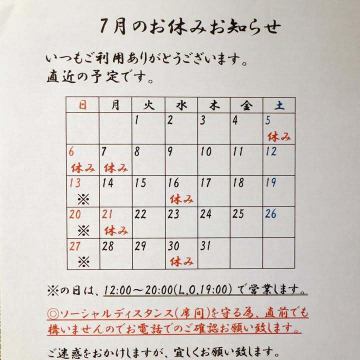 7月のお休みお知らせ
いつもご利用ありがとうございます。
直近の予定です。
日 月 火 水 木 金 土
1 2 3 4 5
休み
6 7 8 9 10 11 12
休み 休み
13 14 15 16 17 18 19
※ 休み
20 21 22 23 24 25 26
※ 休み
27 28 29 30 31
※ 休み
※の日は、12:00〜20:00(L,O,19:00) で営業します。
◎ソーシャルディスタンス(席間)を守る為、直前でも
構いませんのでお電話でのご確認お願い致します。
ご迷惑をおかけしますが、宜しくお願い致します。